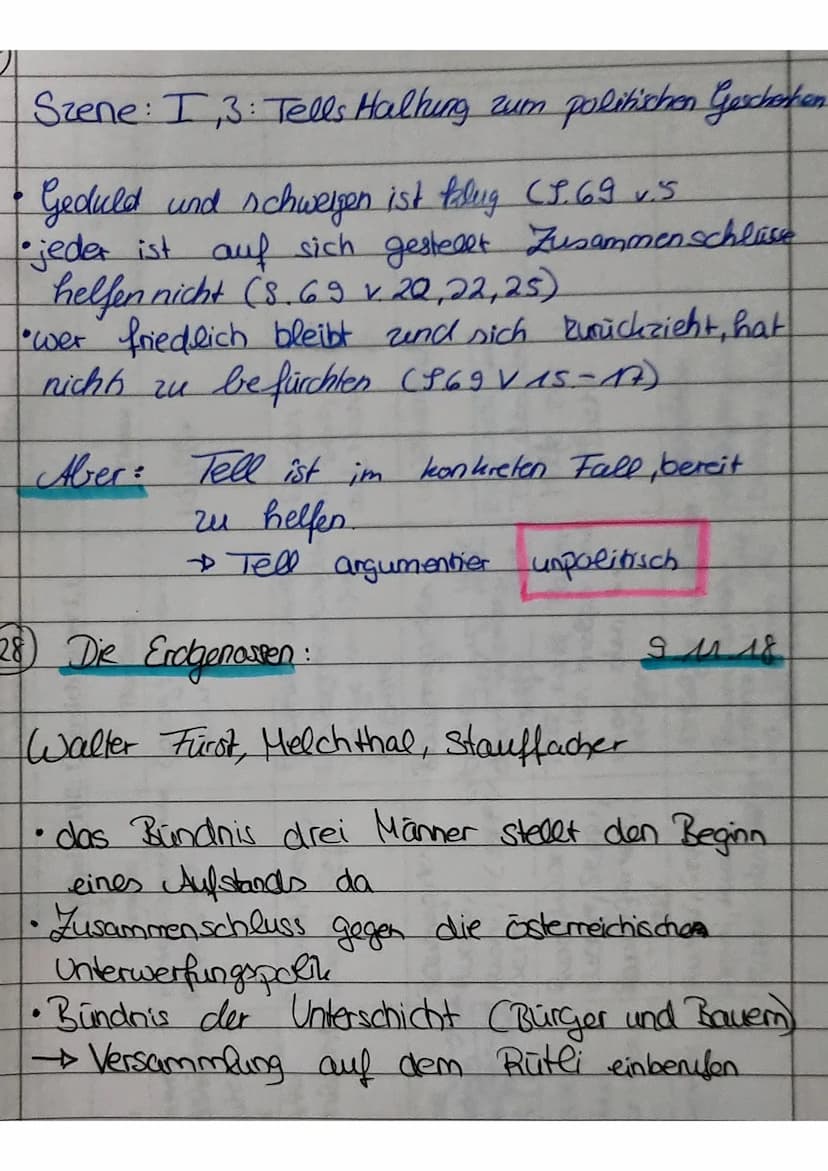 Szene: I,3: Tells Haltung zum politischen Geschehen
• Geduld und schweigen ist klug (S.69 v.5
• jeder ist auf sich gestellt Zusammenschlüsse
helfen nicht (S.69 v.20,22,25)
• wer friedlich bleibt und sich zurückzieht, hat
nichts zu befürchten (S69 V 15-17)
Aber: Tell ist im konkreten Fall, bereit
zu helfen.
→ Tell argumentier unpolitisch
28) Die Erdgenossen: 9 11 18
Walter Fürst, Melchthal, Stauffacher
• das Bündnis drei Männer stellt den Beginn
eines Aufstands da
• Zusammenschluss gegen die österreichischen
Unterwerfungspolitik
• Bündnis der Unterschicht (Bürger und Bauern)
→ Versammlung auf dem Rütli einberufen